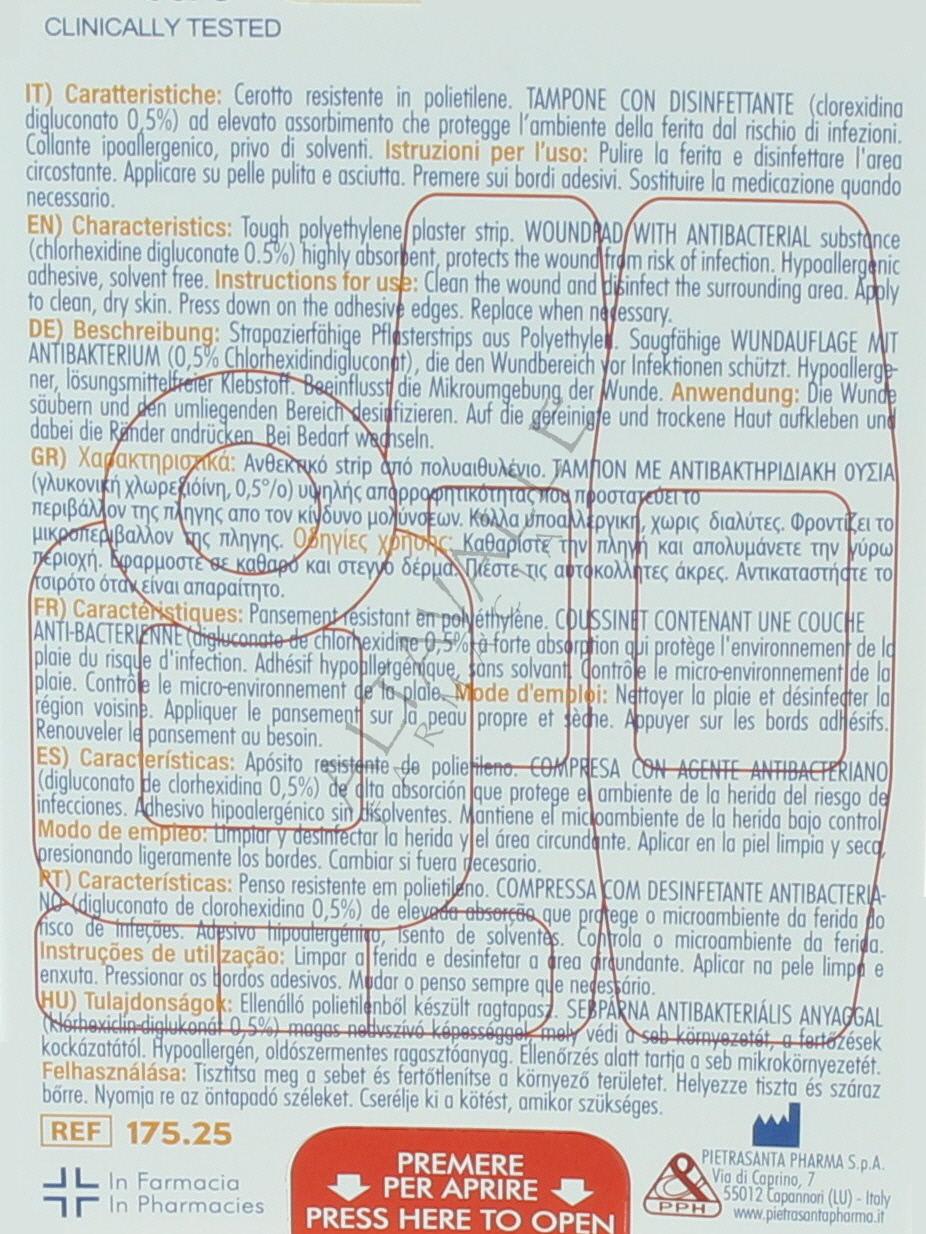 CLINICALLY TESTED
IT) Caratteristiche: Cerotto resistente in polietilene. TAMPONE CON DISINFETTANTE (clorexidina
digluconato 0,5%) ad elevato assorbimento che protegge l'ambiente della ferita dal rischio di infezioni.
Collante ipoallergenico, privo di solventi. Istruzioni per l'uso: Pulire la ferita e disinfettare l'area
circostante. Applicare su pelle pulita e asciutta. Premere sui bordi adesivi. Sostituire la medicazione quando
necessario.
EN) Characteristics: Tough polyethylene plaster strip. WOUNDPAD WITH ANTIBACTERIAL substance
(chlorhexidine digluconate 0.5%) highly absorbent, protects the wound from risk of infection. Hypoallergenic
adhesive, solvent free. Instructions for use: Clean the wound and disinfect the surrounding area. Apply
to clean, dry skin. Press down on the adhesive edges. Replace when necessary.
DE) Beschreibung: Strapazierfähige Pflasterstrips aus Polyethylen. Saugfähige WUNDAUFLAGE MIT
ANTIBAKTERIUM (0,5% Chlorhexidindigluconat), die den Wundbereich vor Infektionen schützt. Hypoallerge-
ner, lösungsmittelfreier Klebstoff. Beeinflusst die Mikroumgebung der Wunde. Anwendung: Die Wunde
säubern und den umliegenden Bereich desinfizieren. Auf die gereinigte und trockene Haut aufkleben und
dabei die Ränder andrücken. Bei Bedarf wechseln.
GR) Χαρακτηριστικά: Ανθεκτικό strip από πολυαιθυλένιο. ΤΑΜΠΟΝ ΜΕ ΑΝΤΙΒΑΚΤΗΡΙΔΙΑΚΗ ΟΥΣΙΑ
(γλυκονική χλωρεξιδίνη, 0,5°/ο) υψηλής απορροφητικότητας που προστατεύει το
περιβάλλον της πληγης απο τον κίνδυνο μολύνσεων. Κολλα υποαλλεργικη, χωρις διαλύτες. Φροντίζει το
μικροπεριβαλλον της πληγης. Οδηγίες χρήσης: Καθαρίστε την πληγή και απολυμάνετε την γύρω
περιοχή. Εφαρμοστε σε καθαρό και στεγνό δέρμα. Πιέστε τις αυτοκολλητες άκρες. Αντικαταστήστε το
τσιρότο όταν είναι απαραίτητο.
FR) Caractéristiques: Pansement resistant en polyéthylène. COUSSINET CONTENANT UNE COUCHE
ANTI-BACTERIENNE (digluconate de chlorhexidine 0,5%) à forte absorption qui protège l'environnement de la
plaie du risque d'infection. Adhésif hypoallergénique, sans solvant. Contrôle le micro-environnement de la
plaie. Contrôle le micro-environnement de la plaie. Mode d'emploi: Nettoyer la plaie et désinfecter la
région voisine. Appliquer le pansement sur la peau propre et sèche. Appuyer sur les bords adhésifs.
Renouveler le pansement au besoin.
ES) Características: Apósito resistente de polietileno. COMPRESA CON AGENTE ANTIBACTERIANO
(digluconato de clorhexidina 0,5%) de alta absorción que protege el ambiente de la herida del riesgo de
infecciones. Adhesivo hipoalergénico sin disolventes. Mantiene el microambiente de la herida bajo control.
Modo de empleo: Limpiar y desinfectar la herida y el área circundante. Aplicar en la piel limpia y seca,
presionando ligeramente los bordes. Cambiar si fuera necesario.
PT) Características: Penso resistente em polietileno. COMPRESSA COM DESINFETANTE ANTIBACTERIA-
NO (digluconato de clorohexidina 0,5%) de elevada absorção que protege o microambiente da ferida do
risco de infeções. Adesivo hipoalergénico, isento de solventes. Controla o microambiente da ferida.
Instruções de utilização: Limpar a ferida e desinfetar a área circundante. Aplicar na pele limpa e
enxuta. Pressionar os bordos adesivos. Mudar o penso sempre que necessário.
HU) Tulajdonságok: Ellenálló polietilénből készült ragtapasz. SEBPÁRNA ANTIBAKTERIÁLIS ANYAGGAL
(klórhexiclin-diglukonát 0,5%) magas nedvszívó képességgel, mely védi a seb környezetét, a fertőzések
kockázatától. Hypoallergén, oldószermentes ragasztóanyag. Ellenőrzés alatt tartja a seb mikrokörnyezetét.
Felhasználása: Tisztítsa meg a sebet és fertőtlenítse a környező területet. Helyezze tiszta és száraz
bőrre. Nyomja re az öntapadó széleket. Cserélje ki a kötést, amikor szükséges.
REF 175.25
In Farmacia
In Pharmacies
PREMERE
PER APRIRE
PRESS HERE TO OPEN
PPH
PIETRASANTA PHARMA S.p.A.
Via di Caprino, 7
55012 Capannori (LU) - Italy
www.pietrasantapharma.it